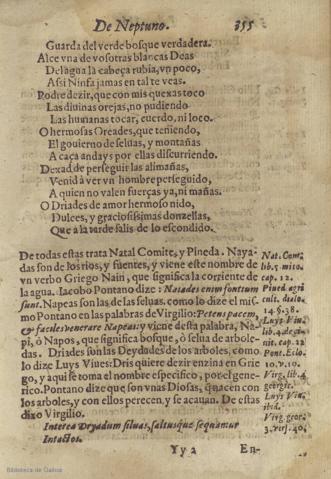 De Neptuno. 355
Guarda del verde bosque verdadera.
Alce vna de vosotras blancas Deas
Del agua la cabeça rubia, vn poco,
Assi Ninfa jamas en tal te veas.
Podre dezir, que con mis quexas toco
Las diuinas orejas, no pudiendo
Las humanas tocar, cuerdo, ni loco.
O hermosas Oreades, que teniendo,
El gouierno de seluas, y montañas
A caça andays por ellas discurriendo.
Dexad de perseguir las alimañas,
Venid à ver vn hombre perseguido,
A quien no valen fuerças ya, ni mañas.
O Driades de amor hermoso nido,
Dulces, y graciosissimas donzellas,
Que a la tarde salis de lo escondido.
De todas estas trata Natal Comite, y Pineda. Naya-
das son de los rios, y fuentes, y viene este nombre de
vn verbo Griego Nain, que significa la corriente de
la agua. Iacobo Pontano dize: Naiades enim fontium
sunt. Napeas son las de las seluas. como lo dize el mis-
mo Pontano en las palabras de Virgilio: Petens pacem,
& faciles venerare Napeas: y viene desta palabra, Na-
pi, ò Napos, que significa bosque, ò selua de arbole-
das. Driades son las Deydades de los arboles, como
lo dize Luys Viues: Dris quiere dezir enzina en Grie-
go, y aqui se toma el nombre especifico, por el gene-
rico. Pontano dize que son vnas Diosas, q̃ nacen con
los arboles, y con ellos perecen, y se acauan. De estas
dixo Virgilio.
Interea Dryadum siluas, saltusque sequamur
Intactos.
Nat. Com.
lib. 5. mito.
cap. 12.
Pined. agri
cult. dialo.
14. §. 38.
Luys Viu.
lib. 4. de
cap. 12
Pont. Eclo.
10. v. 10.
Virg. lib. 4
georgic.
Luys Viu
ibid.
Virg. geor.
3. vers. 40.
Yy 2 En-
Biblioteca de Galicia